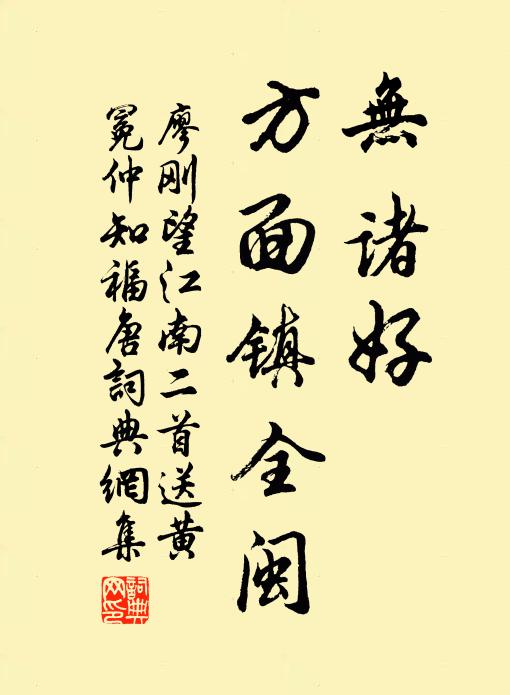 無诸好
方面镇全闽
廖刚望江南二首送黄
冕仲知福唐詞典網集
詞典網印